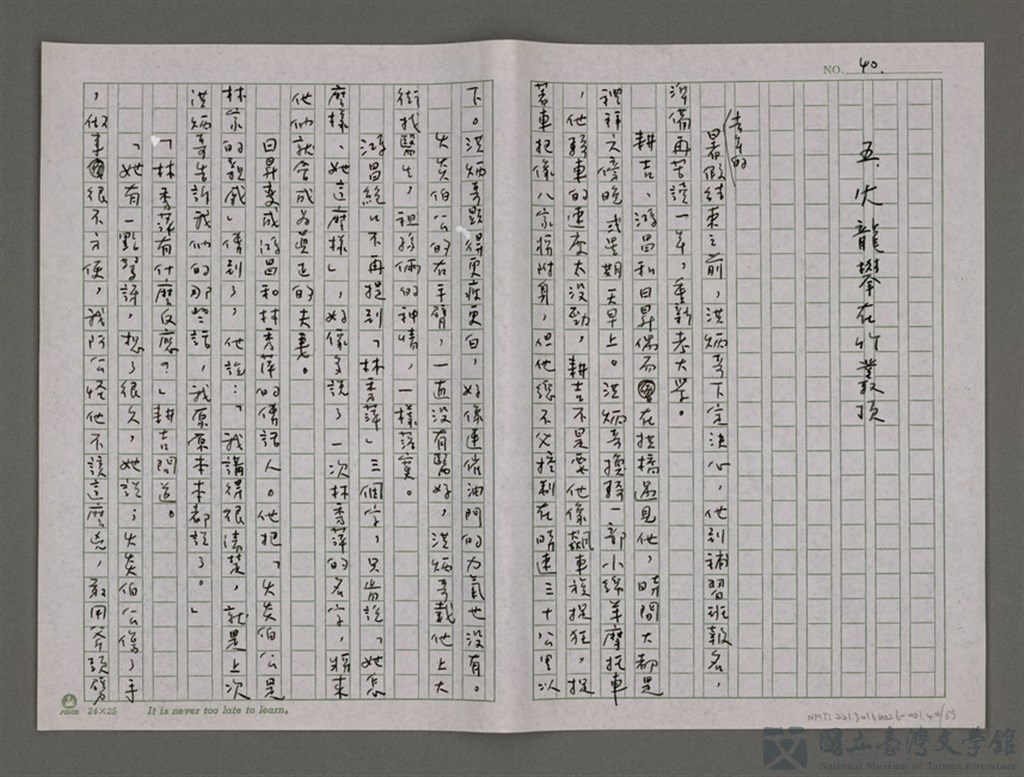 NO. 40.
五、火龍攀在竹叢頂
(去年的)
暑假結束之前，洪炳哥下定決心，他到補習班報名，
準備再苦讀一年，重新考大學。
耕吉、鴻昌和日昇偶而在拱橋遇見他，時間大都是
禮拜六傍晚或星期天早上。洪炳哥換騎一部小綿羊摩托車
，他騎車的速度太沒勁，耕吉不是要他像飆車族捉狂，捉
著車把像八家將附身，但他總不必控制在時速三十公里以
下。洪炳哥顯得更疲更白，好像連催油門的力氣也沒有。
火炎伯公的右手臂，一直沒有醫好，洪炳哥載他上大
街找醫生，祖孫倆的神情，一樣落寞。
鴻昌絕口不再提到「林秀萍」三個字，只肯說「她怎
麼樣、她這麼樣」，好像多說了一次林秀萍的名字，將來
他們就會成為真正的夫妻。
日昇變成鴻昌和林秀萍的傳話人。他把「火炎伯公是
林家的親戚」傳到了，他說：「我講得很清楚，就是上次
洪炳哥告訴我們的那些話，我原原本本都說了。」
「林秀萍有什麼反應？」耕吉問道。
「她有一點驚訝，想了很久，她說；火炎伯公傷了手
，做事很不方便，我阿公怪他不該這麼兇，敢用斧頭劈
24×25
It is never too late to learn.
國立臺灣文學館
National Museum of Taiwan Literature